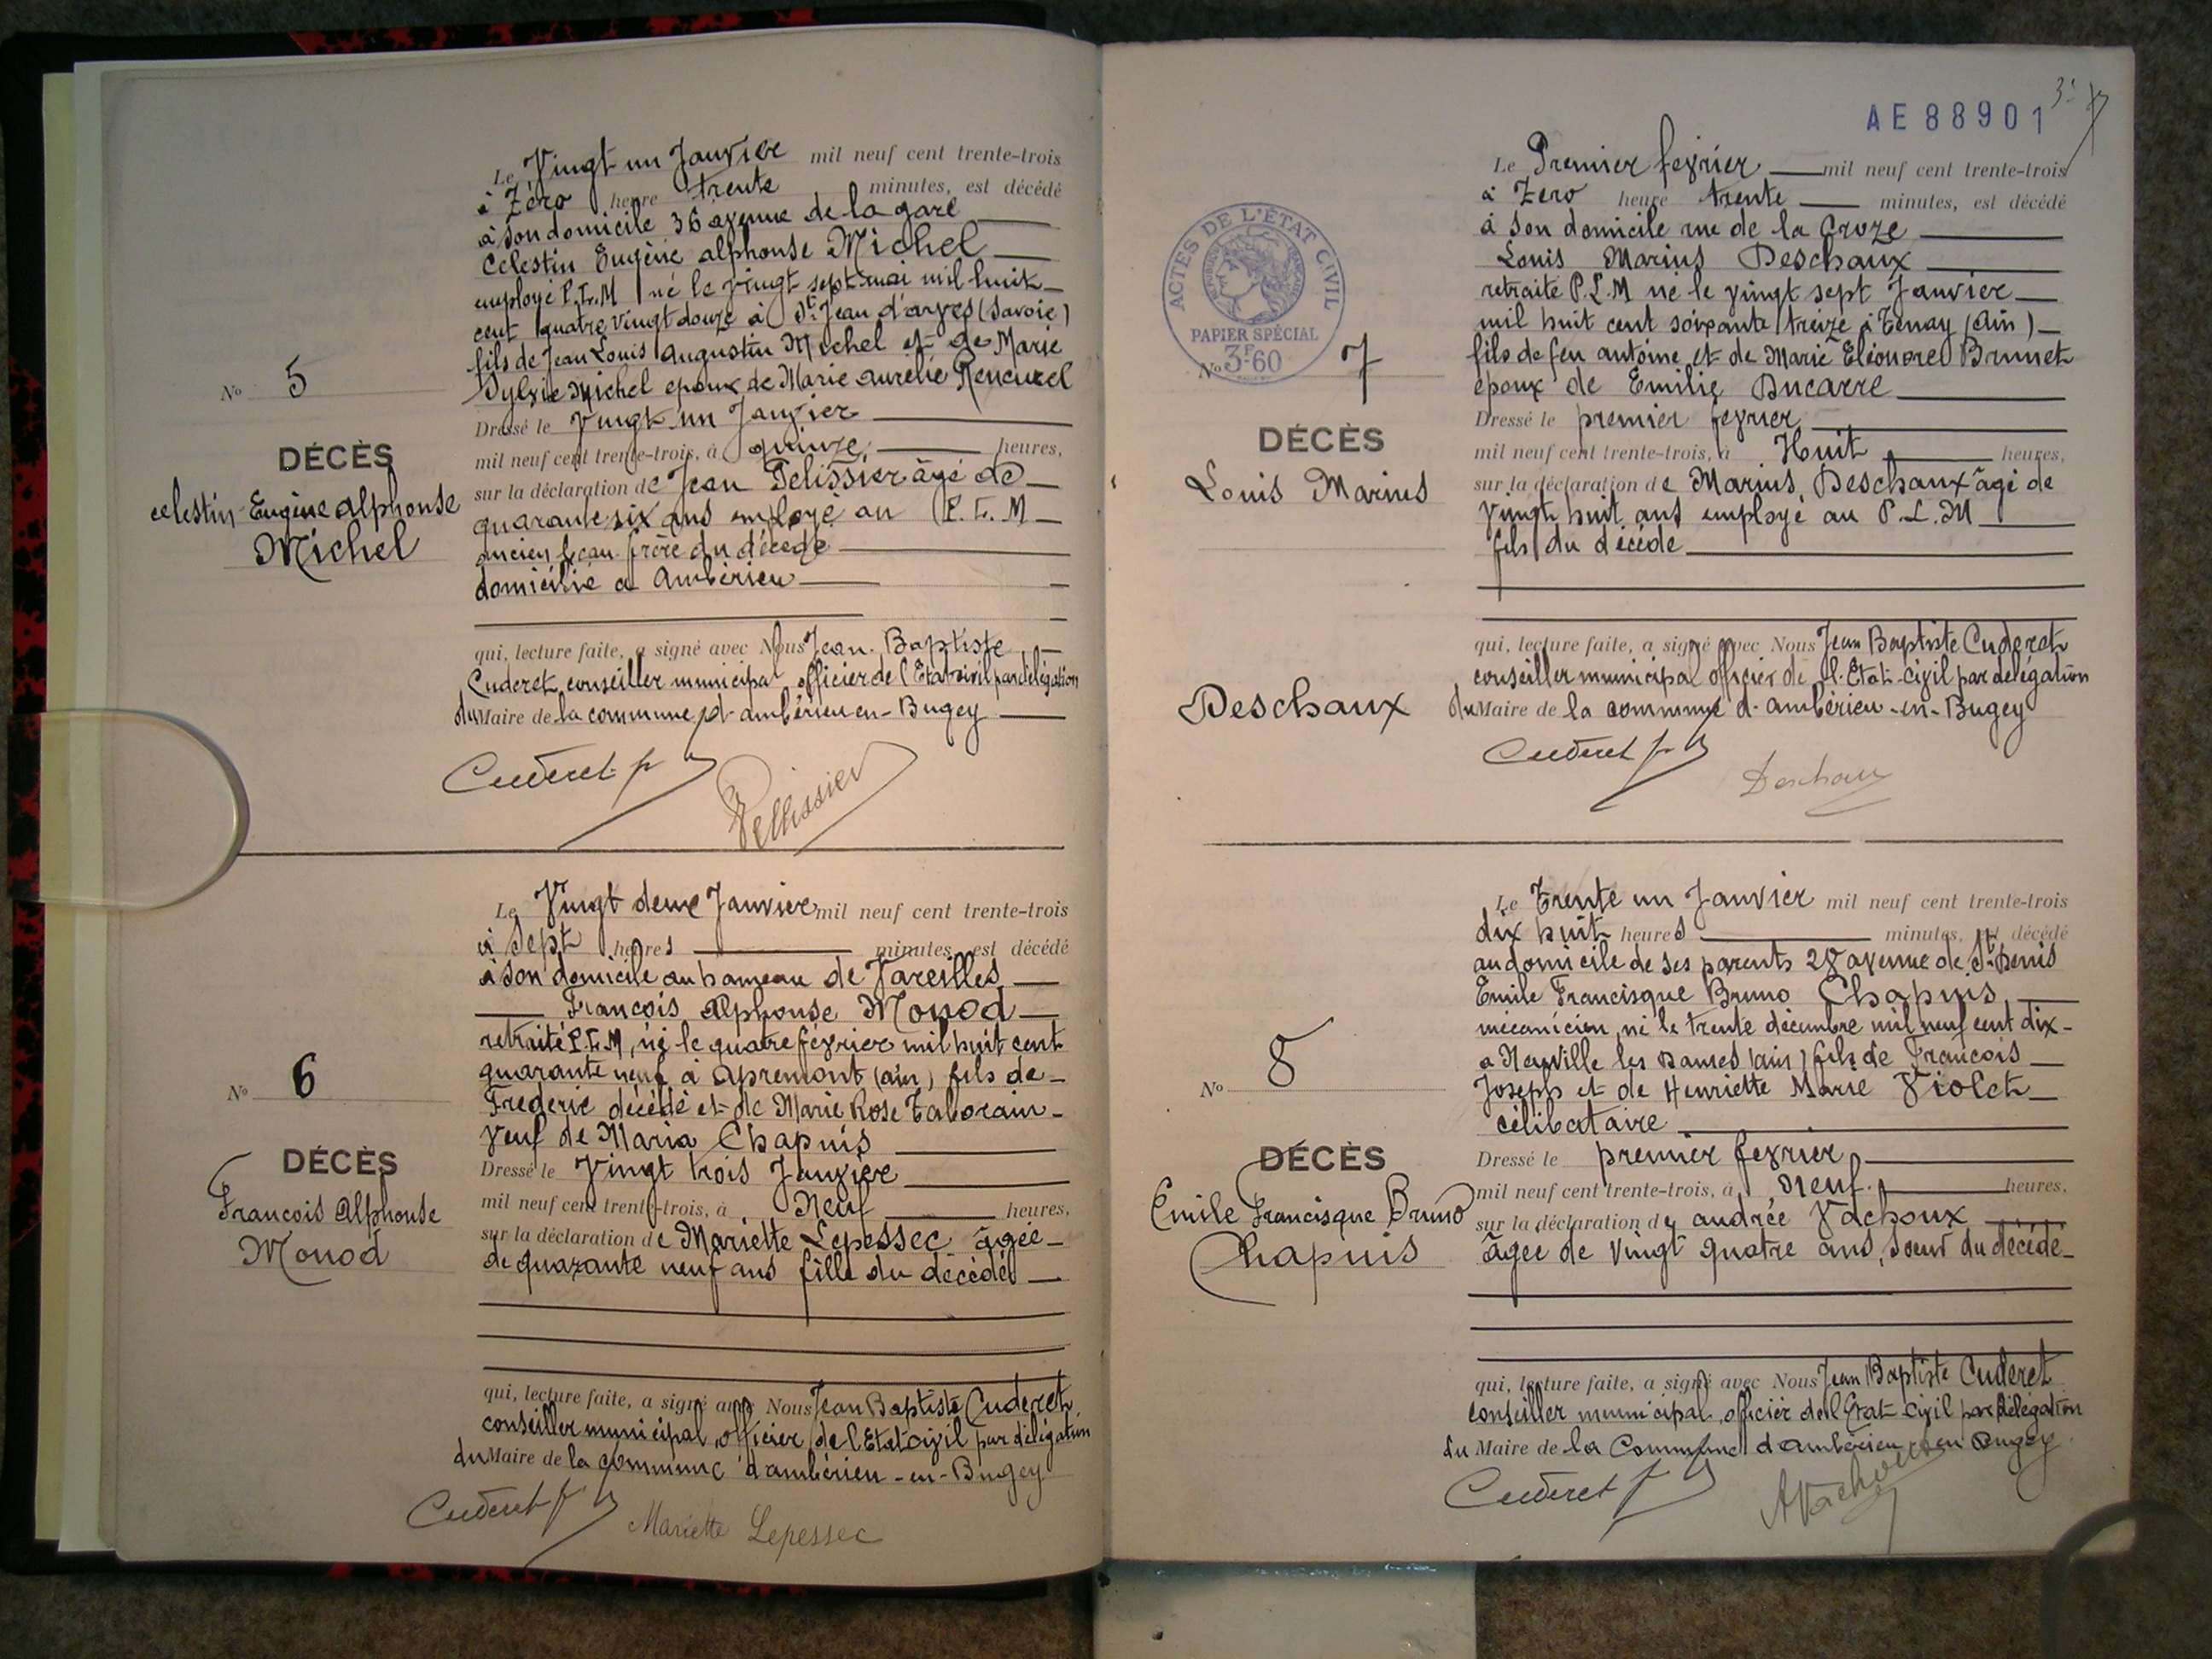 Le Vingt un Janvier mil neuf cent trente-trois
à Zéro heure trente minutes, est décédé
à son domicile 36 avenue de la gare
Celestin Eugène alphonse Michel
employé P.L.M né le vingt sept mai mil huit
cent quatre vingt douze à St Jean d'arves (Savoie)
fils de Jean Louis Augustin Michel et de Marie
Sylvie Michel epoux de Marie aurelie Rencurel
No 5
DÉCÈS
celestin Eugène alphonse
Michel
Dressé le Vingt un Janvier
mil neuf cent trente-trois, à quinze heures,
sur la déclaration de Jean Pelissier âgé de
quarante six ans employé au P.L.M
ancien beau-frère du décédé
domicilié a Ambérieu
qui, lecture faite, a signé avec Nous Jean-Baptiste
Cuderet, conseiller municipal officier de l'Etat civil par délégation
du Maire de la commune d'ambérieu-en-Bugey
Cuderet
Pellissier
Le Vingt deux Janvier mil neuf cent trente-trois
à Sept heures minutes, est décédé
à son domicile au hameau de Vareilles
François Alphonse Monod
retraité P.L.M, né le quatre février mil huit cent
quarante neuf à apremont (ain) fils de
Frederic décédé et de Marie Rose
veuf de Maria Chapuis
No 6
DÉCÈS
Francois Alphonse
Monod
Dressé le Vingt trois Janvier
mil neuf cent trente-trois, à Neuf heures,
sur la déclaration de Mariette Lepessec âgée
de quarante neuf ans fille du décédé
qui, lecture faite, a signé avec Nous Jean Baptiste Cuderet
conseiller municipal, officier de l'Etat civil par délégation
du Maire de la commune d'ambérieu-en-Bugey
Cuderet
Mariette Lepessec
AE 88901
ACTES DE L'ÉTAT CIVIL
RÉPUBLIQUE FRANÇAISE
PAPIER SPÉCIAL
3F60
Le Premier fevrier mil neuf cent trente-trois
à Zero heure trente minutes, est décédé
à son domicile rue de la Croze
Louis Marius Deschaux
retraité P.L.M né le vingt sept Janvier
mil huit cent soixante treize à Tenay (Ain)
fils de feu antoine et de Marie Eléonore Brunet
epoux de Emilie Ducarre
No 7
DÉCÈS
Louis Marius
Deschaux
Dressé le premier fevrier
mil neuf cent trente-trois, à Huit heures,
sur la déclaration de Marius Deschaux âgé de
Vingt huit ans employé au P.L.M
fils du décédé
qui, lecture faite, a signé avec Nous Jean Baptiste Cuderet
conseiller municipal officier de l'Etat-civil par delégation
du Maire de la commune d'ambérieu-en-Bugey
Cuderet
Deschaux
Le Trente un Janvier mil neuf cent trente-trois
dix huit heures minutes, est décédé
au domicile de ses parents 28 avenue de St Denis
Emile Francisque Bruno Chapuis
mécanicien, né le trente décembre mil neuf cent dix
a Neuville les Dames (ain) fils de Francois
Joseph et de Henriette Marie Violet
célibataire
No 8
DÉCÈS
Emile Francisque Bruno
Chapuis
Dressé le premier fevrier
mil neuf cent trente-trois, à Neuf heures,
sur la déclaration de andrée Vachoux
âgée de vingt quatre ans, soeur du décédé
qui, lecture faite, a signé avec Nous Jean Baptiste Cuderet
conseiller municipal, officier de l'Etat-civil par délégation
du Maire de la Commune d'ambérieu en Bugey
Cuderet
AVachoux